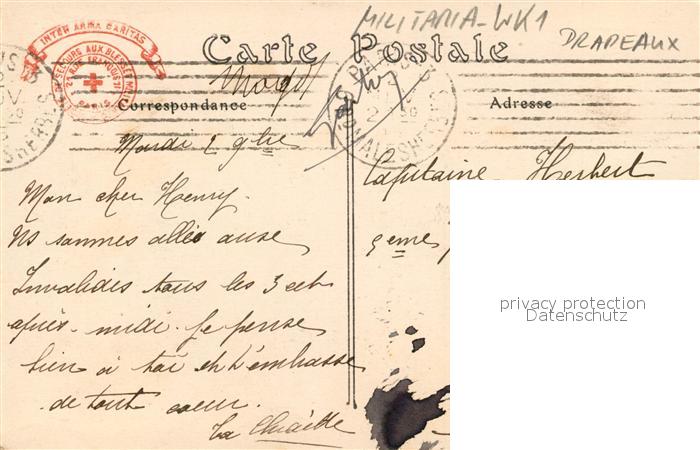 MILITARIA-WK1
DRAPEAUX
INTER ARMA CARITAS
SECOURS AUX BLESSES
21 RUE FRANÇOIS 1er
PARIS
Carte Postale
Correspondance
Adresse
PARIS
R. DUMAL
Mardi 2 9bre
Mon cher Henry.
Ns sommes allés aux
Invalides tous les 3 cet
après-midi. Je pense
bien à toi et t'embrasse
de tout coeur.
Ta
Capitaine Herbert
5eme
privacy protection
Datenschutz